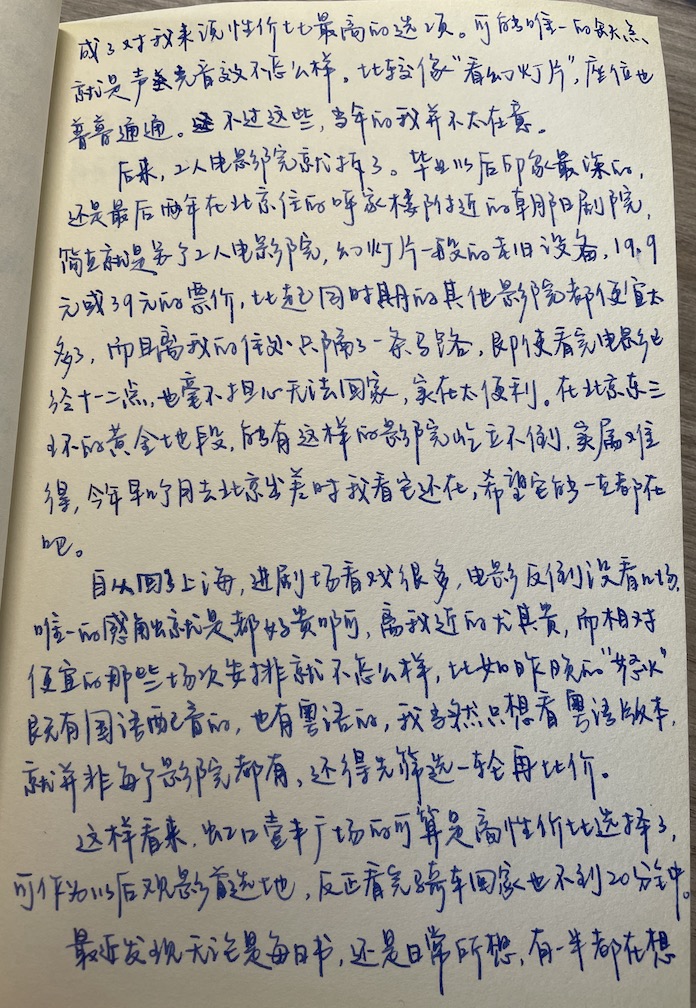 成了对我来说性价比最高的选项。可能唯一的缺点、
就是声光音效不怎么样。比较像“看幻灯片”,座位也
普普通通。不过这些,当年的我并不太在意。
后来,工人电影院就拆了。毕业以后印象最深的,
还是最后两年在北京住的呼家楼附近的朝阳剧院,
简直就是另了工人电影院,幻灯片一般的老旧设备,19.9
元或39元的票价,比起同时期的其他影院都便宜太
多了,而且离我的住处只隔了一条马路,即使看完电影已
经十二点,也毫不担心无法回家,实在太便利。在北京东三
环的黄金地段,能有这样的影院屹立不倒,实属难
得,今年早些月去北京出差时我看它还在,希望它能一直都在
吧。
自从回了上海,进剧场看戏很多,电影反倒没看几场,
唯一的感触就是都好贵啊,离我近的尤其贵,而相对
便宜的那些场次安排就不怎么样,比如昨晚的“怒火”
既有国语配音的,也有粤语的,我当然只想看粤语版本,
就并非每个影院都有,还得先筛选一轮再比价。
这样看来,虹口壹丰广场的可算是高性价比选择了,
可作为以后观影首选地,反正看完骑车回家也不到20分钟。
最近发现无论是每日书,还是日常所想,有一半都在想